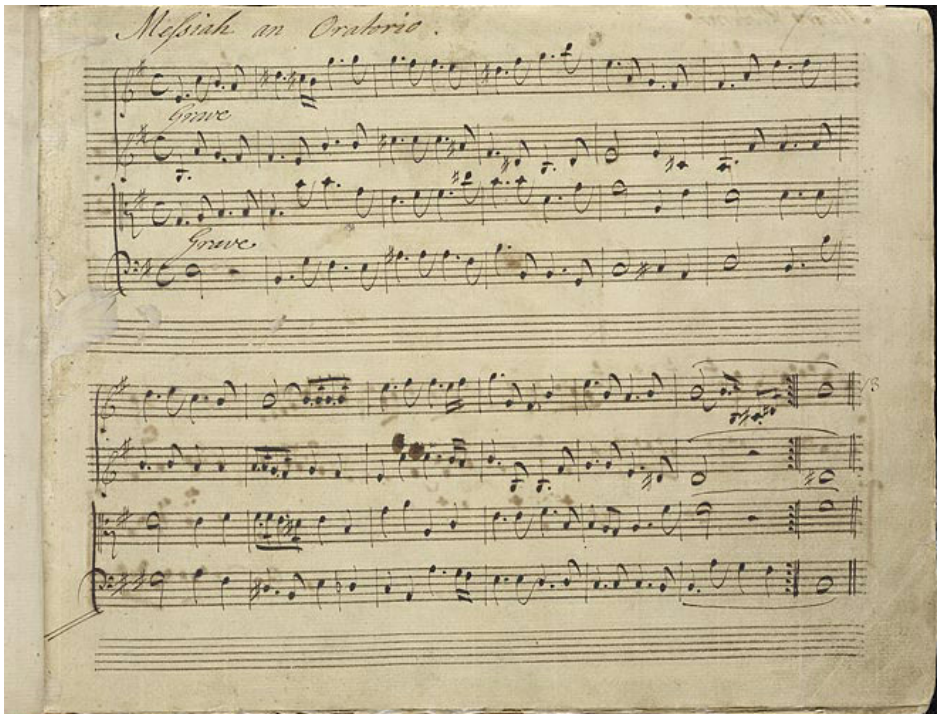 Meſsiah an Oratorio.
Grave
Grave